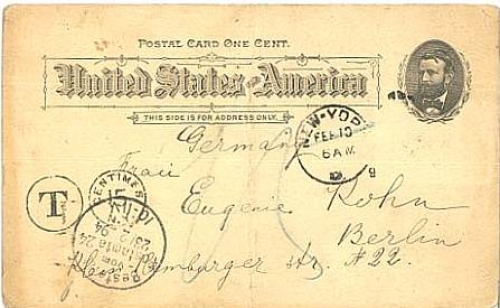 POSTAL CARD ONE CENT.
United States of America
THIS SIDE IS FOR ADDRESS ONLY.
NEW-YOR
FEB 10
6 AM
Germany
Frau
Eugenie Kohn
Berlin
Hamburger str. N 22.
T
CENTIMES